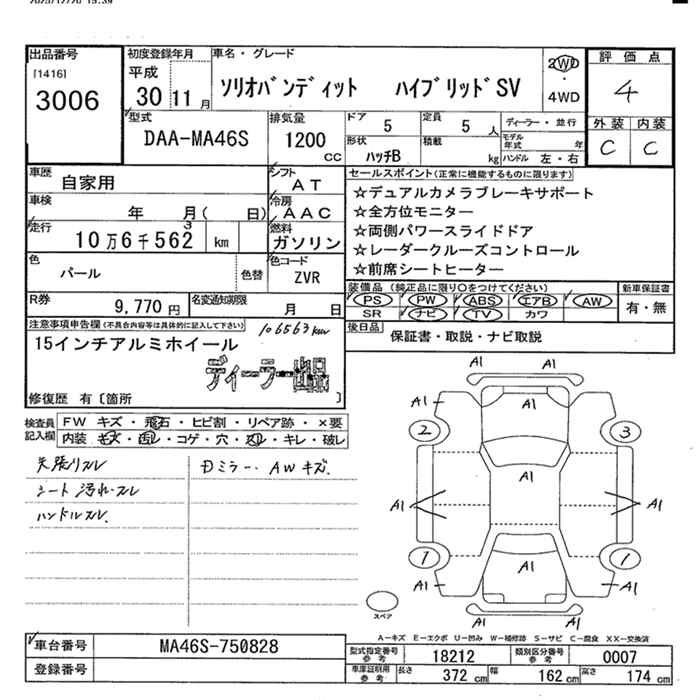 2025/12/20 15:39
出品番号
[1416]
3006
初度登録年月
平成
30 11 月
車名・グレード
ソリオバンディット ハイブリッドSV
2WD
・
4WD
評価点
4
外装 内装
C C
型式
DAA-MA46S
排気量
1200
CC
ドア 5
定員 5 人
形状 ハッチB
積載 kg
ディーラー・並行
モデル年式 年
ハンドル 左・右
車歴 自家用
シフト AT
車検 年 月( 日)
冷房 AAC
走行 10万6千562 km
3
燃料 ガソリン
色 パール
色替
色コード ZVR
R券 9,770 円
名変通知期限 月 日
セールスポイント(正常に機能するものに限ります)
☆デュアルカメラブレーキサポート
☆全方位モニター
☆両側パワースライドドア
☆レーダークルーズコントロール
☆前席シートヒーター
装備品 (純正品に限り○をつけてください)
PS PW ABS エアB AW
SR ナビ TV カワ
新車保証書
有・無
後日品 保証書・取説・ナビ取説
注意事項申告欄(不具合内容等は具体的に記入して下さい)
106563km
15インチアルミホイール
ディーラー
修復歴 有〔箇所 〕
検査員記入欄
FW キズ・飛石・ヒビ割・リペア跡・×要
内装 キズ・汚れ・コゲ・穴・スレ・キレ・破レ
天張リスレ
シート 汚れ・スレ
ハンドルスレ
Dミラー、AWキズ、
A1 A1
A1 A1 A1
2 3
A1
A1 A1
1 1
A1
A1 A1
A1
スペア
A－キズ E－エクボ U－凹み W－補修跡 S－サビ C－腐食 XX－交換済
車台番号 MA46S-750828
登録番号
型式指定番号 参考 18212
類別区分番号 参考 0007
車庫証明用 参考 長さ 372 cm 幅 162 cm 高さ 174 cm